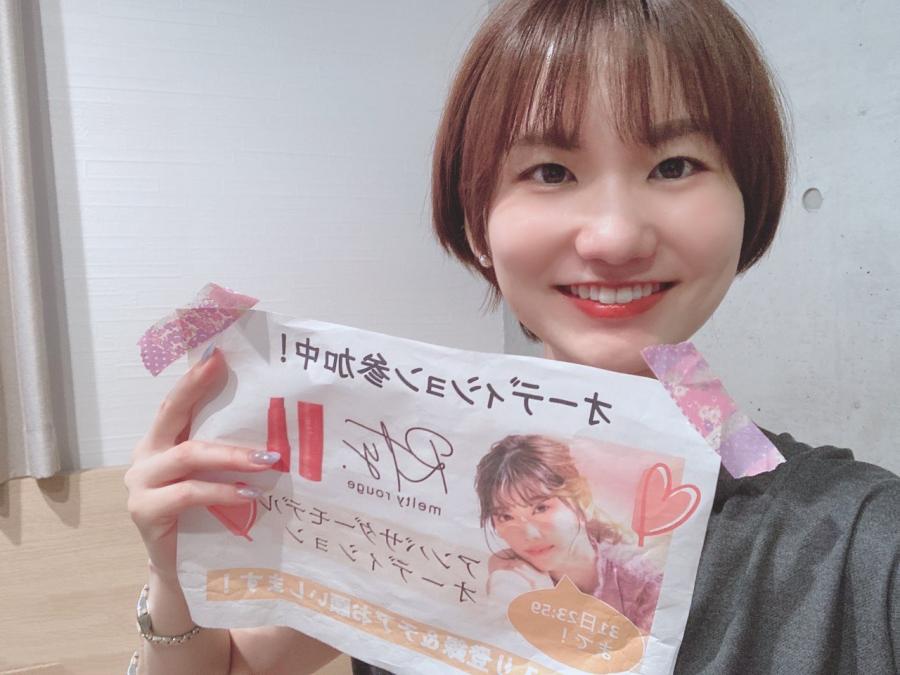 オーディション参加中!
Rfy.
melty rouge
アンバサダーモデル
オーディション
31日23:59
まで!
り登録&デアお願いします!